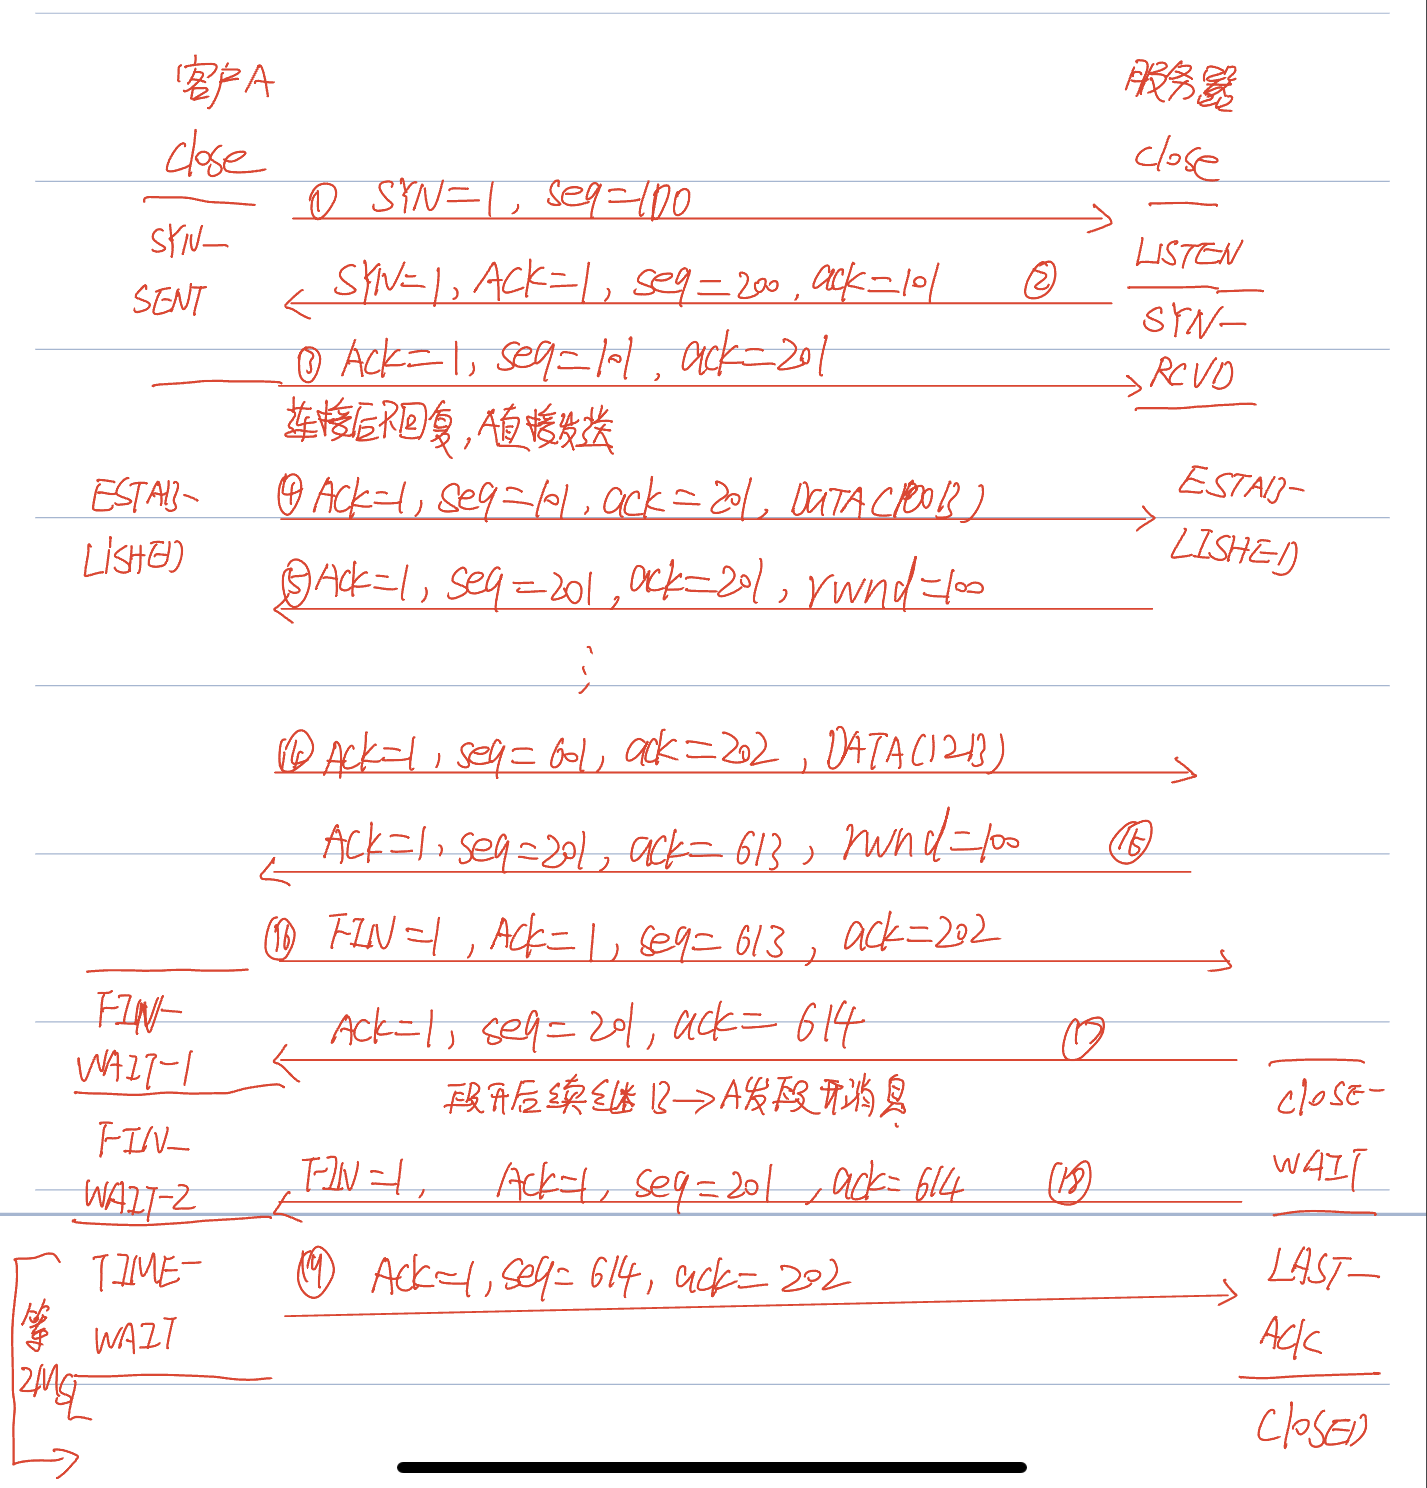 客户A 服务器
close close
① SYN=1, seq=100
SYN-
SENT
LISTEN
SYN=1, Ack=1, seq=200, ack=101 ②
SYN-
RCVD
③ Ack=1, seq=101, ack=201
连接后不回复,A直接发送
ESTAB-
LISHED
④ Ack=1, seq=101, ack=201, DATA(100B)
ESTAB-
LISHED
⑤ Ack=1, seq=201, ack=201, rwnd=100
⋮
⑭ Ack=1, seq=601, ack=202, DATA(12B)
Ack=1, seq=201, ack=613, rwnd=100 ⑮
⑯ FIN=1, Ack=1, seq=613, ack=202
FIN-
WAIT-1
Ack=1, seq=201, ack=614 ⑰
段开后续继B→A发段开消息
CLOSE-
WAIT
FIN-
WAIT-2
FIN=1, Ack=1, seq=201, ack=614 ⑱
TIME-
WAIT
⑲ Ack=1, seq=614, ack=202
LAST-
ACK
等
2MSL
CLOSED